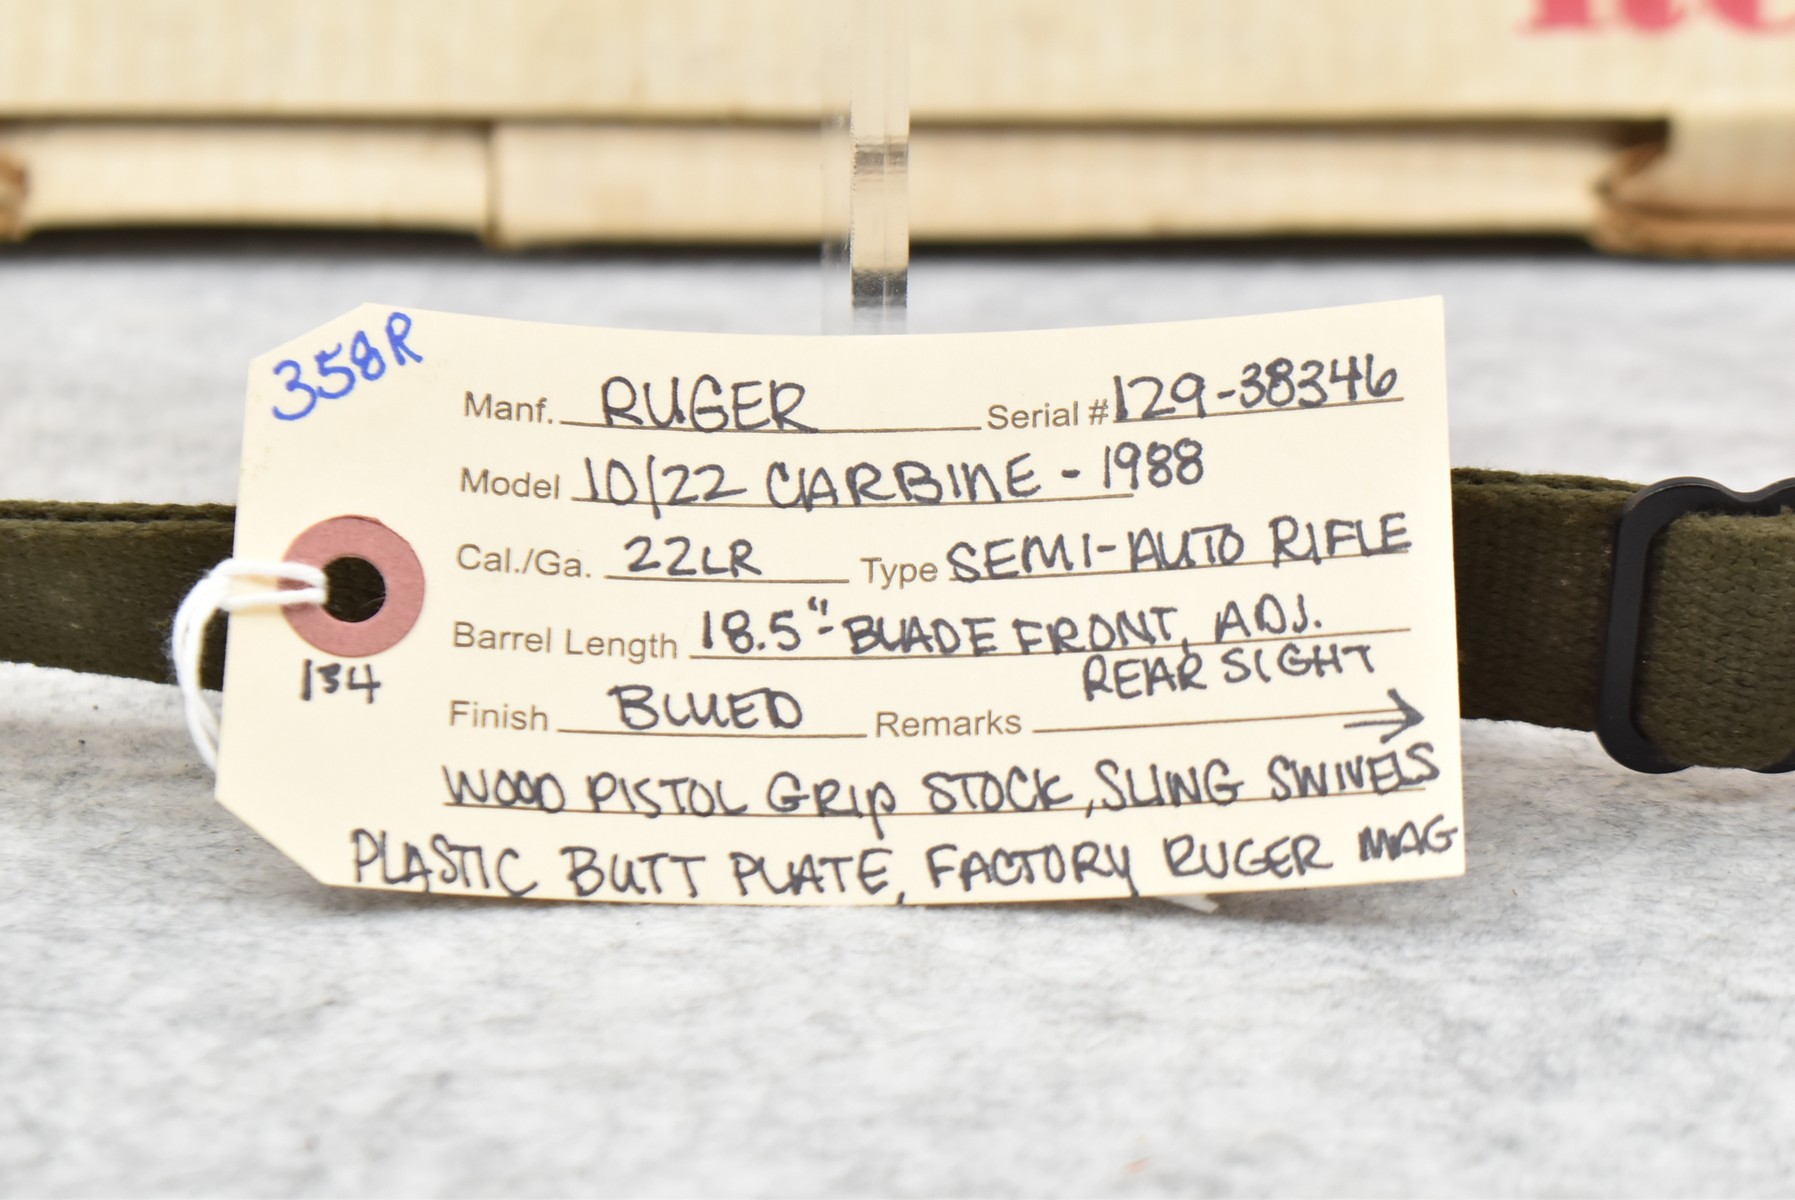 358R
Manf. RUGER Serial # 129-38346
Model 10/22 CARBINE - 1988
Cal./Ga. 22LR Type SEMI-AUTO RIFLE
Barrel Length 18.5"- BLADE FRONT, ADJ.
REAR SIGHT
134
Finish BLUED Remarks →
WOOD PISTOL GRIP STOCK, SLING SWIVELS
PLASTIC BUTT PLATE, FACTORY RUGER MAG